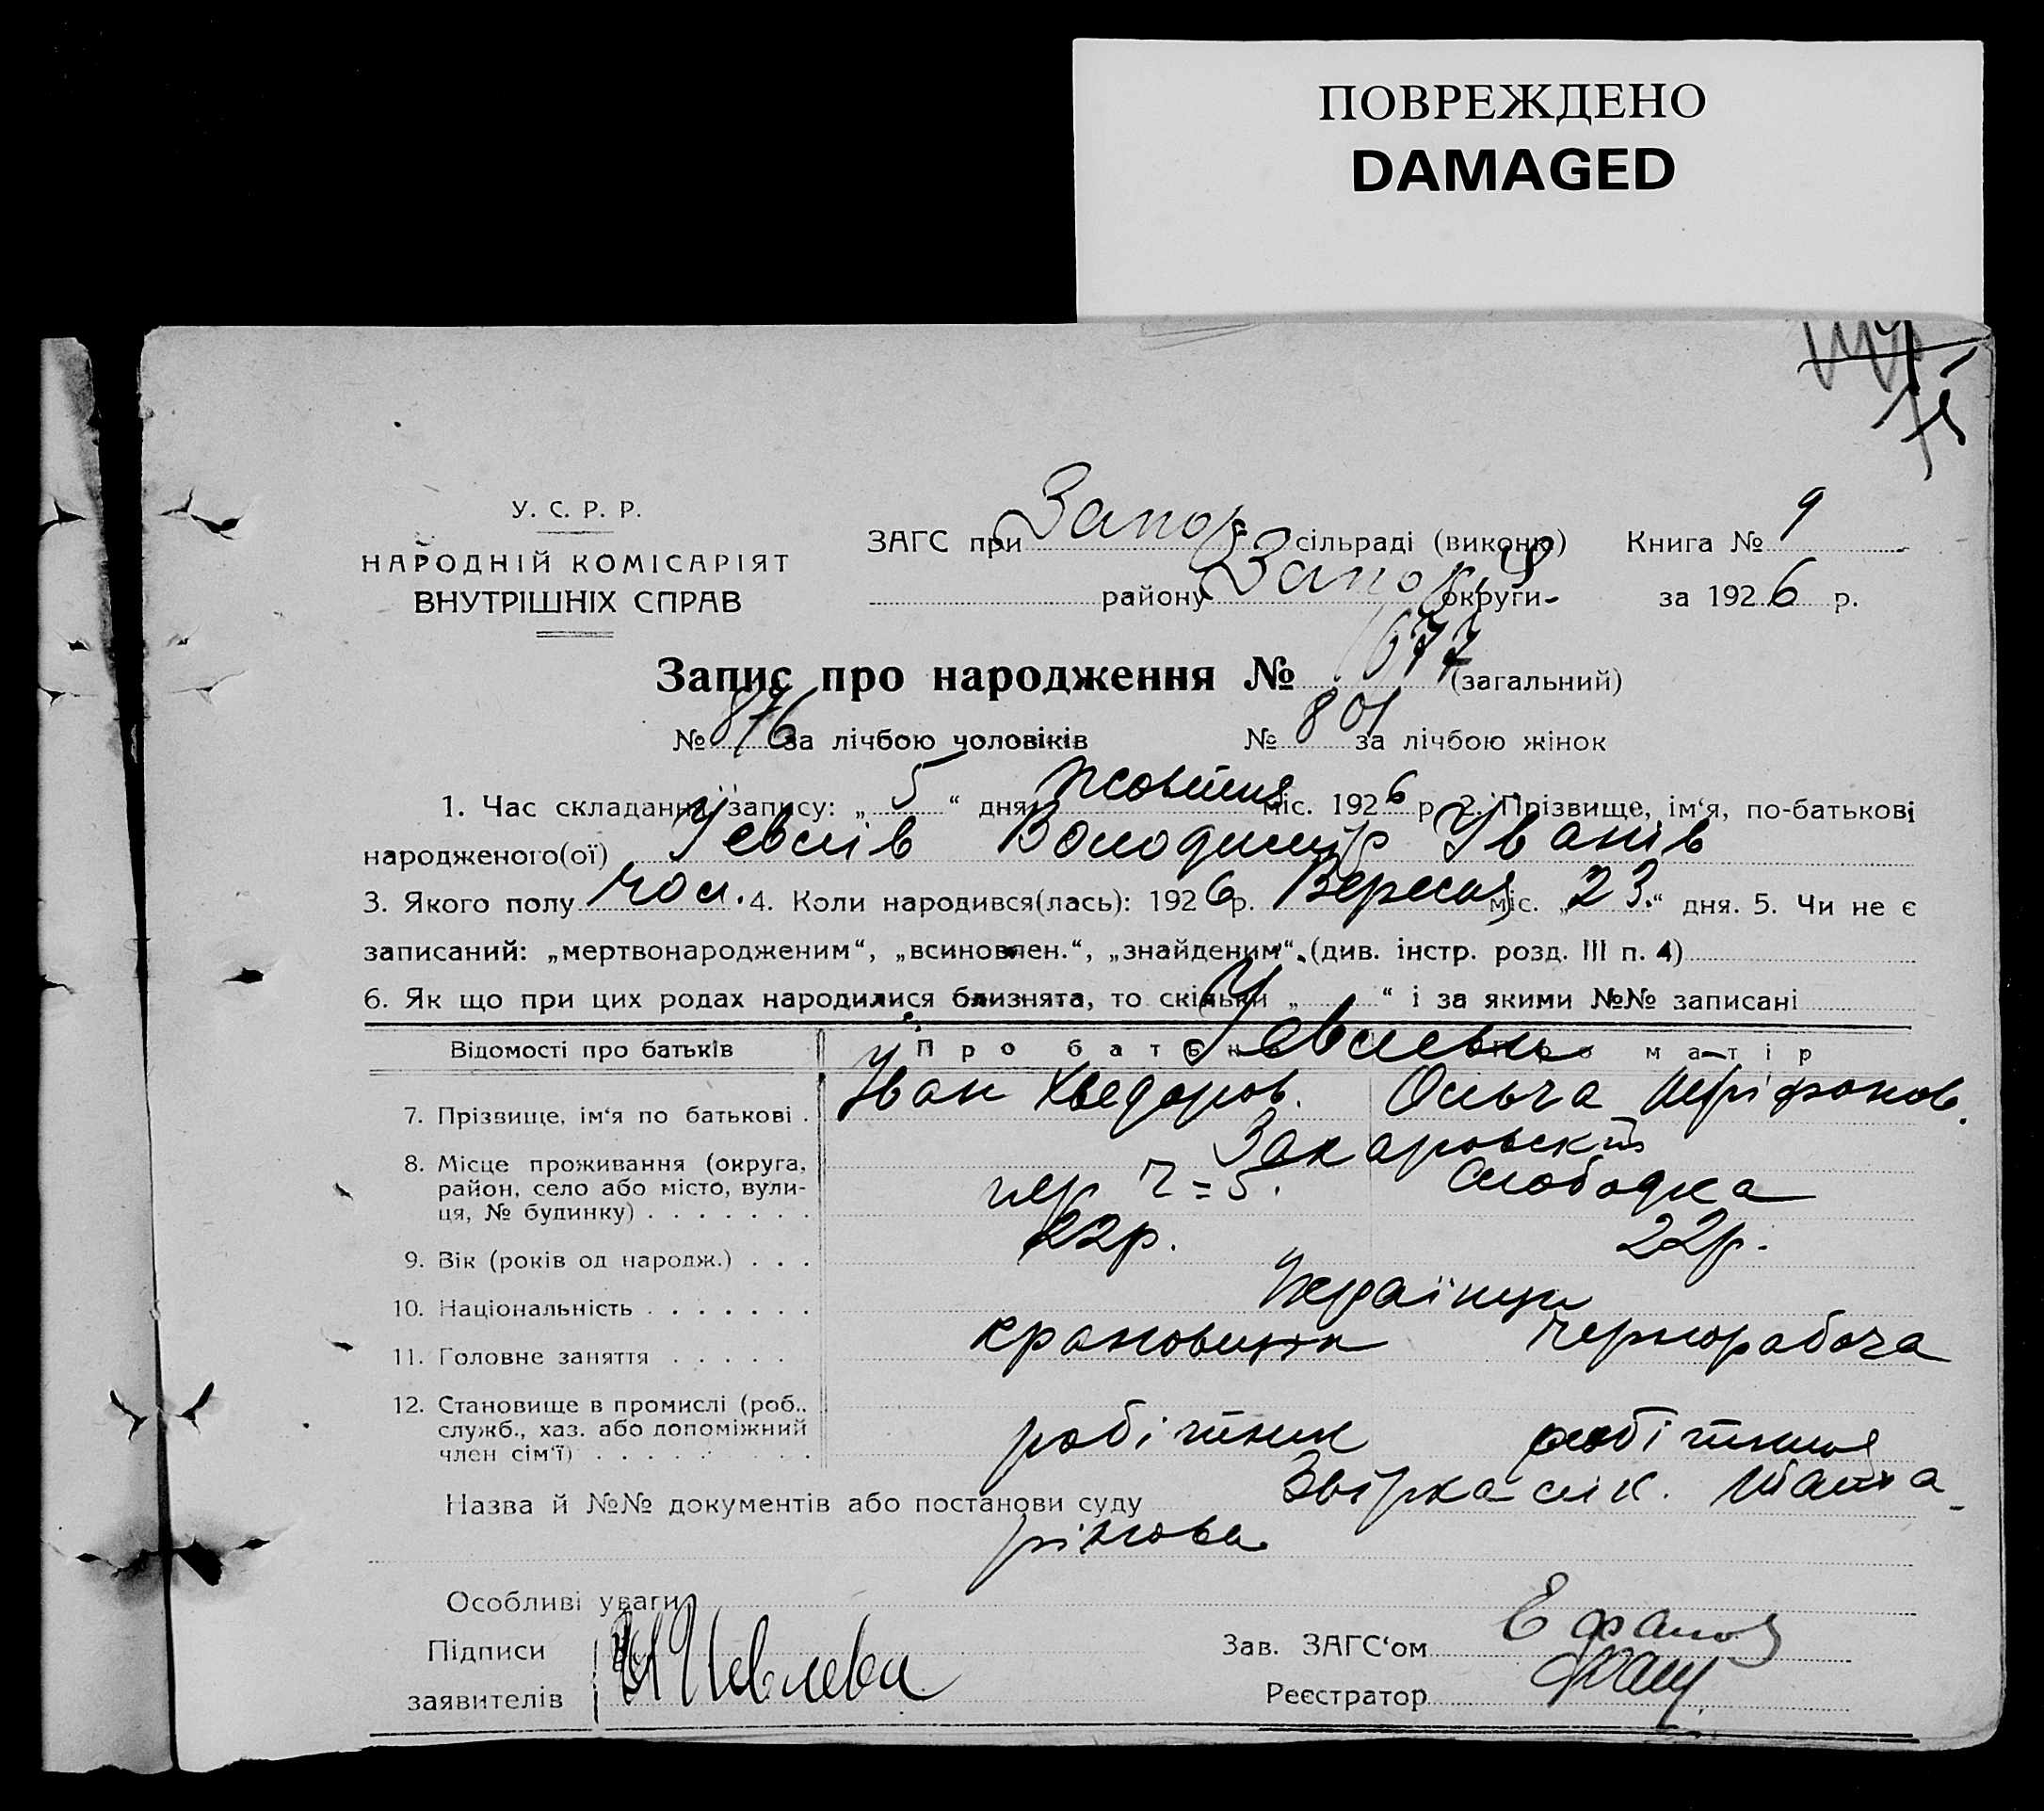 ПОВРЕЖДЕНО
DAMAGED
У. С. Р. Р.
НАРОДНІЙ КОМІСАРІЯТ
ВНУТРІШНІХ СПРАВ
ЗАГС при Запор. сільраді (виконк) Книга № 9
району Запор. округи за 1926 р.
Запис про народження № 1677 (загальний)
№ 876 за лічбою чоловіків № 801 за лічбою жінок
1. Час складання запису: „ 5 “ дня Жовтня міс. 1926 р. 2. Прізвище, ім‘я, по-батькові
народженого(ої) Іевлів Володимір Іванів
3. Якого полу чол. 4. Коли народився(лась): 1926 р. Вересня міс. „ 23. “ дня. 5. Чи не є
записаний: „мертвонародженим“, „всиновлен.“, „знайденим“. (див. інстр. розд. III п. 4)
6. Як що при цих родах народилися близнята, то скільки „ “ і за якими №№ записані
Відомості про батьків Про батька Про матір
Іевлеви
7. Прізвище, ім‘я по батькові . Іван Хведоров. Ольга Тріфонов.
8. Місце проживання (округа, район, село або місто, вулиця, № будинку) . . . . . . .
пер 2=5. Слободка
9. Вік (років од народж.) . . . 22р. 22р.
10. Національність . . . . . . . Українци
11. Головне заняття . . . . . крановщик чернорабоча
12. Становище в промислі (роб., служб., хаз. або допоміжний член сім‘ї) . . . . . . . .
робітник робітниця
Назва й №№ документів або постанови суду
Особливі уваги
Підписи
заявителів И Иевлева
Зав. ЗАГС‘ом
Реєстратор